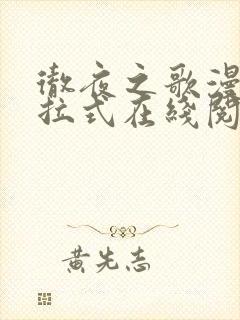 彻夜之歌漫
拉式在线阅
黄先志